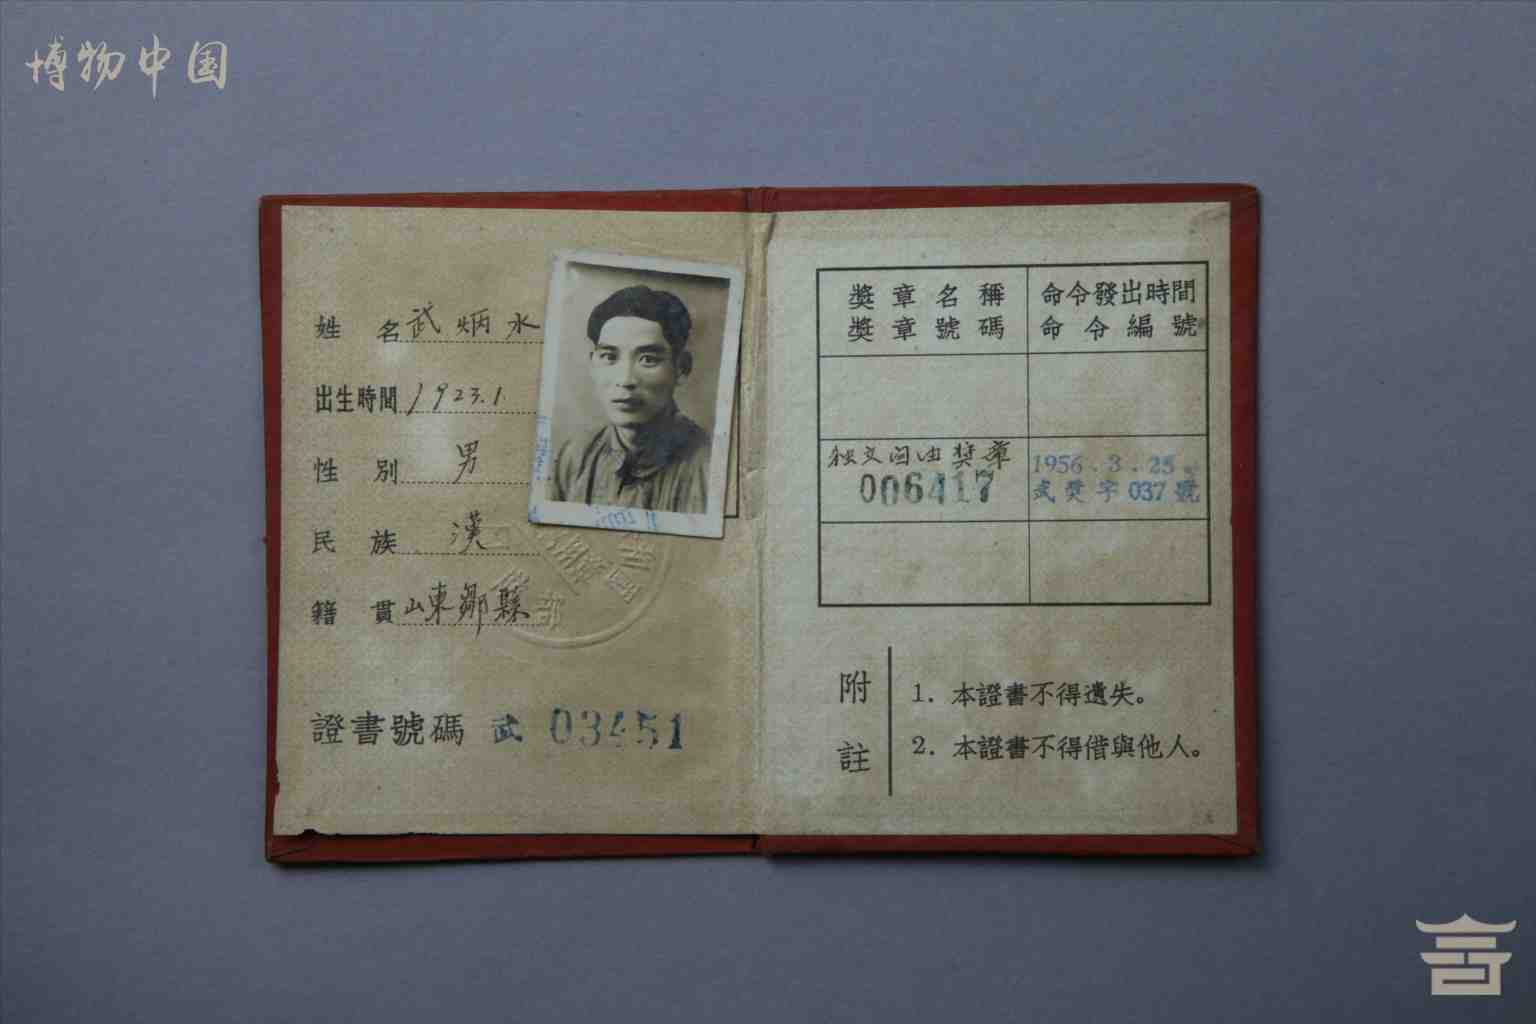 博物中国
姓名 武炳水
出生時間 1923.1
性別 男
民族 漢
籍貫 山東鄒縣
證書號碼 武 03451
獎章名稱
獎章號碼
命令發出時間
命令編號
獎章
006417
1956.3.25.
武獎字037號
附註
1. 本證書不得遺失。
2. 本證書不得借與他人。